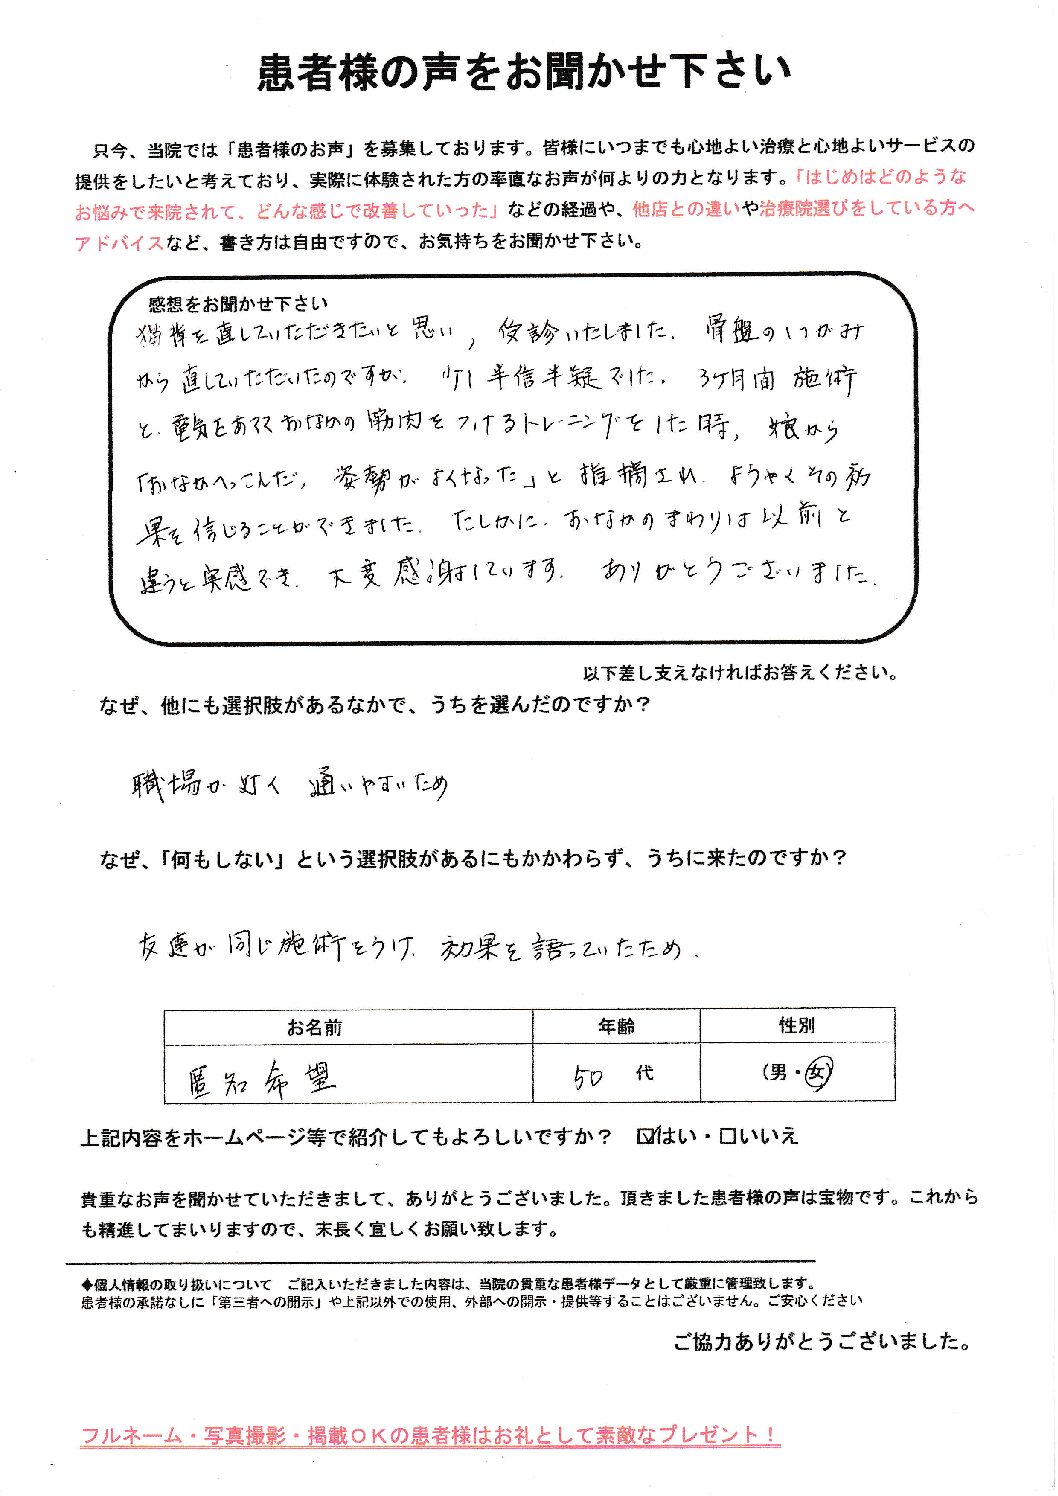 患者様の声をお聞かせ下さい
只今、当院では「患者様のお声」を募集しております。皆様にいつまでも心地よい治療と心地よいサービスの
提供をしたいと考えており、実際に体験された方の率直なお声が何よりの力となります。「はじめはどのような
お悩みで来院されて、どんな感じで改善していった」などの経過や、他店との違いや治療院選びをしている方へ
アドバイスなど、書き方は自由ですので、お気持ちをお聞かせ下さい。
感想をお聞かせ下さい
猫背を直していただきたいと思い、受診いたしました。骨盤のゆがみ
から直していただいたのですが、半信半疑でした。3ヶ月間施術
と、電気をあてておなかの筋肉をつけるトレーニングをした時、娘から
「おなかへっこんだ、姿勢がよくなった」と指摘され、ようやくその効
果を信じることができました。たしかに、おなかのまわりは以前と
違うと実感でき、大変感謝しています。ありがとうございました。
以下差し支えなければお答えください。
なぜ、他にも選択肢があるなかで、うちを選んだのですか？
職場が近く 通いやすいため
なぜ、「何もしない」という選択肢があるにもかかわらず、うちに来たのですか？
友達が同じ施術をうけ、効果を語っていたため。
お名前 年齢 性別
匿知希望 50 代 （男・女）
上記内容をホームページ等で紹介してもよろしいですか？ ☑はい・□いいえ
貴重なお声を聞かせていただきまして、ありがとうございました。頂きました患者様の声は宝物です。これから
も精進してまいりますので、末長く宜しくお願い致します。
◆個人情報の取り扱いについて ご記入いただきました内容は、当院の貴重な患者様データとして厳重に管理致します。
患者様の承諾なしに「第三者への開示」や上記以外での使用、外部への開示・提供等することはございません。ご安心ください
ご協力ありがとうございました。
フルネーム・写真撮影・掲載ＯＫの患者様はお礼として素敵なプレゼント！